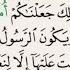 لِكَ جَعَلْنَكُمْ أُم
يَكُونَ ٱلرَّسُولُ
تَ عَلَيْهَآ إِلَّا لِنَ